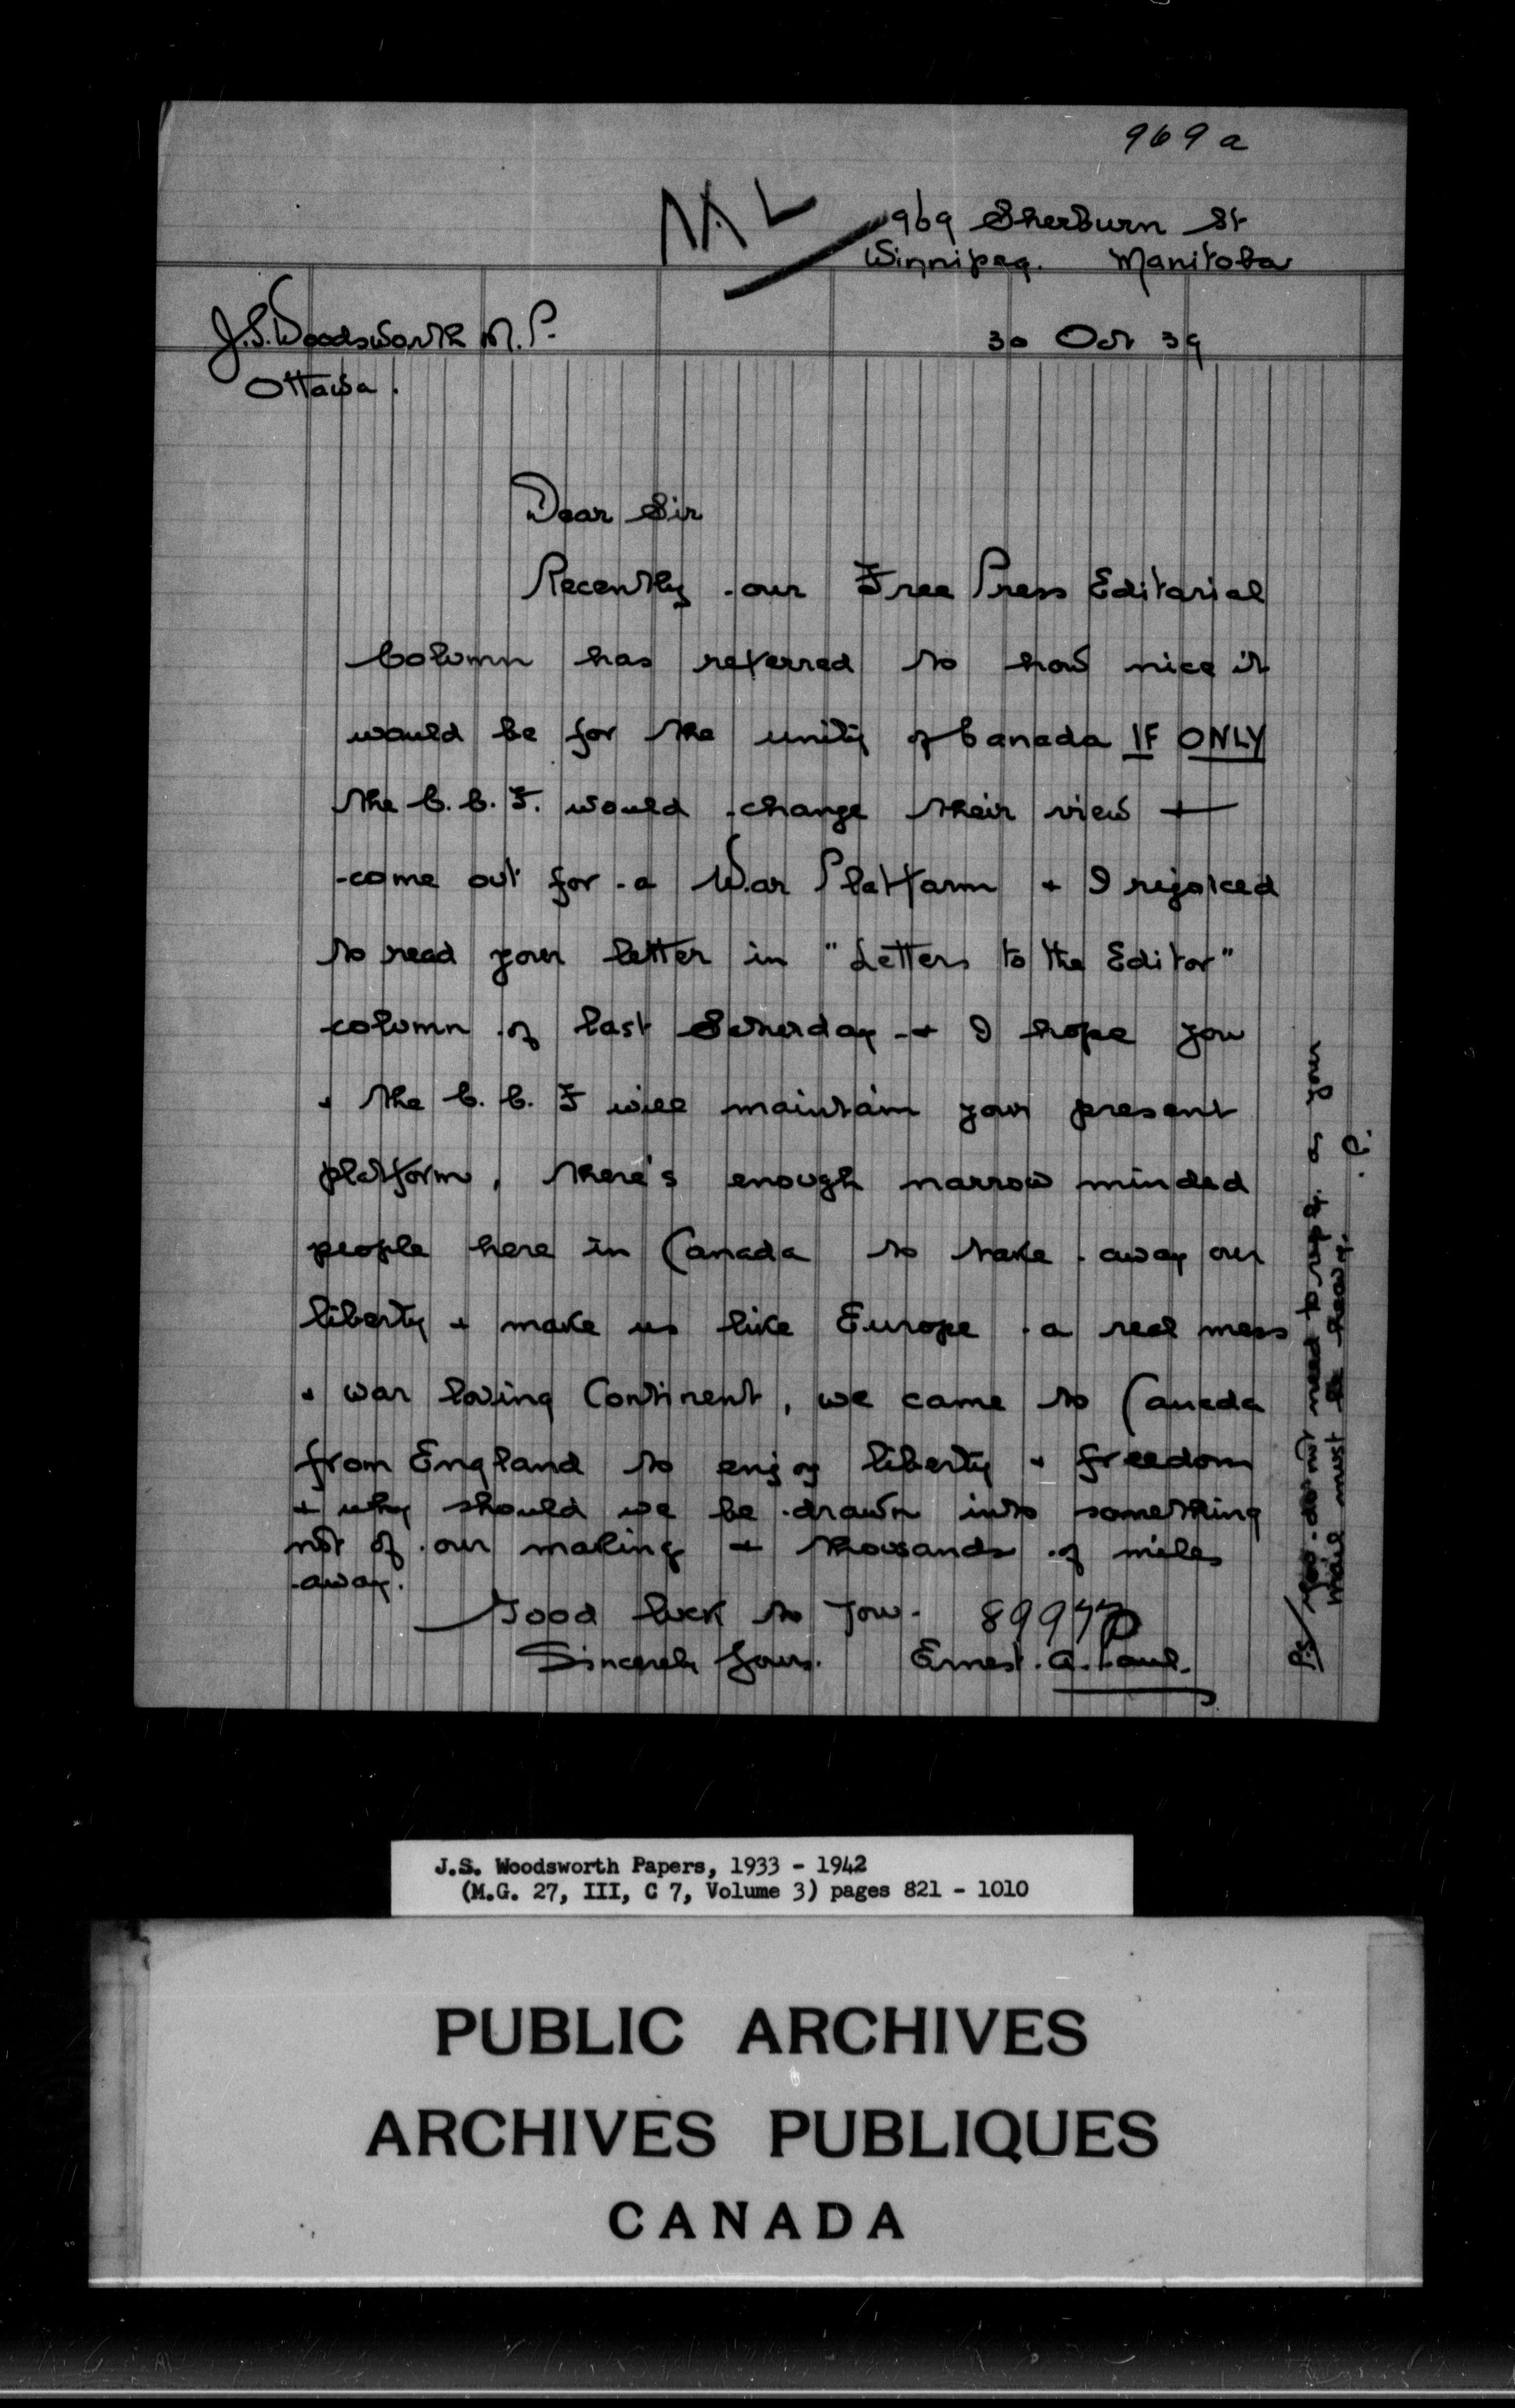 969 a
969 Sherburn St
Winnipeg. Manitoba
J.S. Woodsworth M.P.
30 Oct 39
Ottawa.
Dear Sir
Recently our Free Press Editorial
Column has referred to how nice it
would be for the unity of Canada IF ONLY
the C.C.F. would change their view +
come out for a War Platform + I rejoiced
to read your letter in "Letters to the Editor"
column of last Saturday + I hope you
+ the C.C.F will maintain your present
platform, there's enough narrow minded
people here in Canada to take away our
liberty + make us like Europe a real mess
+ war loving Continent, we came to Canada
from England to enjoy liberty + freedom
+ why should we be drawn into something
not of our making + thousands of miles
away.
Good luck to you.
Sincerely Yours. Ernest. A. Paul.
P.S/ you do not need to reply. as your
mail must be heavy.
J.S. Woodsworth Papers, 1933 - 1942
(M.G. 27, III, C 7, Volume 3) pages 821 - 1010
PUBLIC ARCHIVES
ARCHIVES PUBLIQUES
CANADA